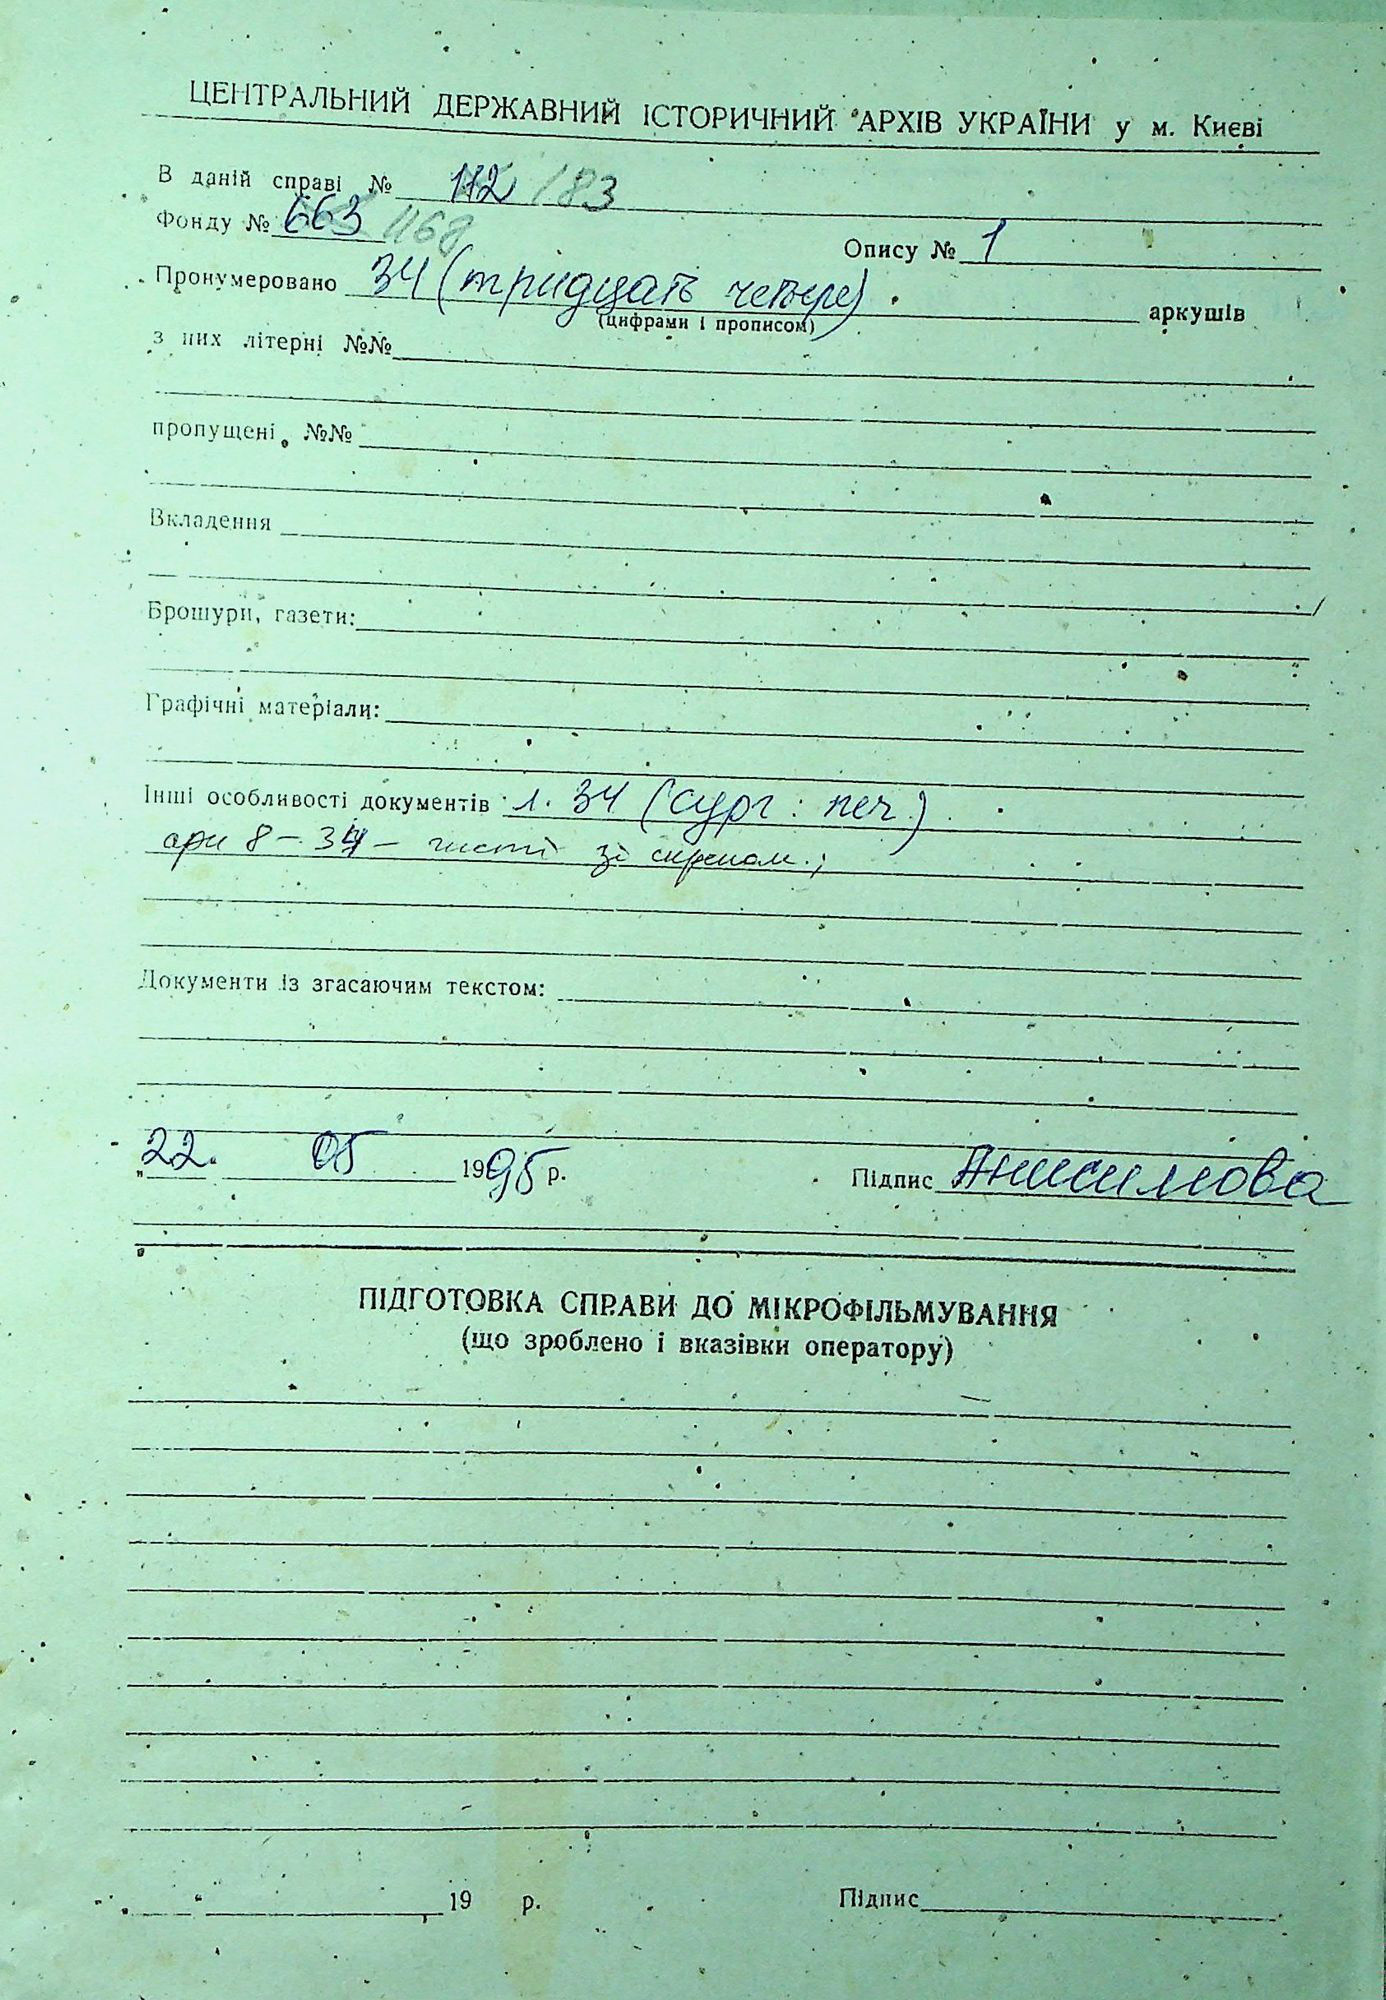 ЦЕНТРАЛЬНИЙ ДЕРЖАВНИЙ ІСТОРИЧНИЙ АРХІВ УКРАЇНИ у м. Києві
В даній справі № 112 / 83
Фонду № 663 1168
Опису № 1
Пронумеровано 34 (тридцать четыре) аркушів
(цифрами і прописом)
з них літерні №№
пропущені №№
Вкладення
Брошури, газети:
Графічні матеріали:
Інші особливості документів л. 34 (сург. печ.)
арк 8 - 34 - чисті зі скрепом.;
Документи із згасаючим текстом:
„22. 05 1995 р.
Підпис Анисимова
ПІДГОТОВКА СПРАВИ ДО МІКРОФІЛЬМУВАННЯ
(що зроблено і вказівки оператору)
19 р.
Підпис